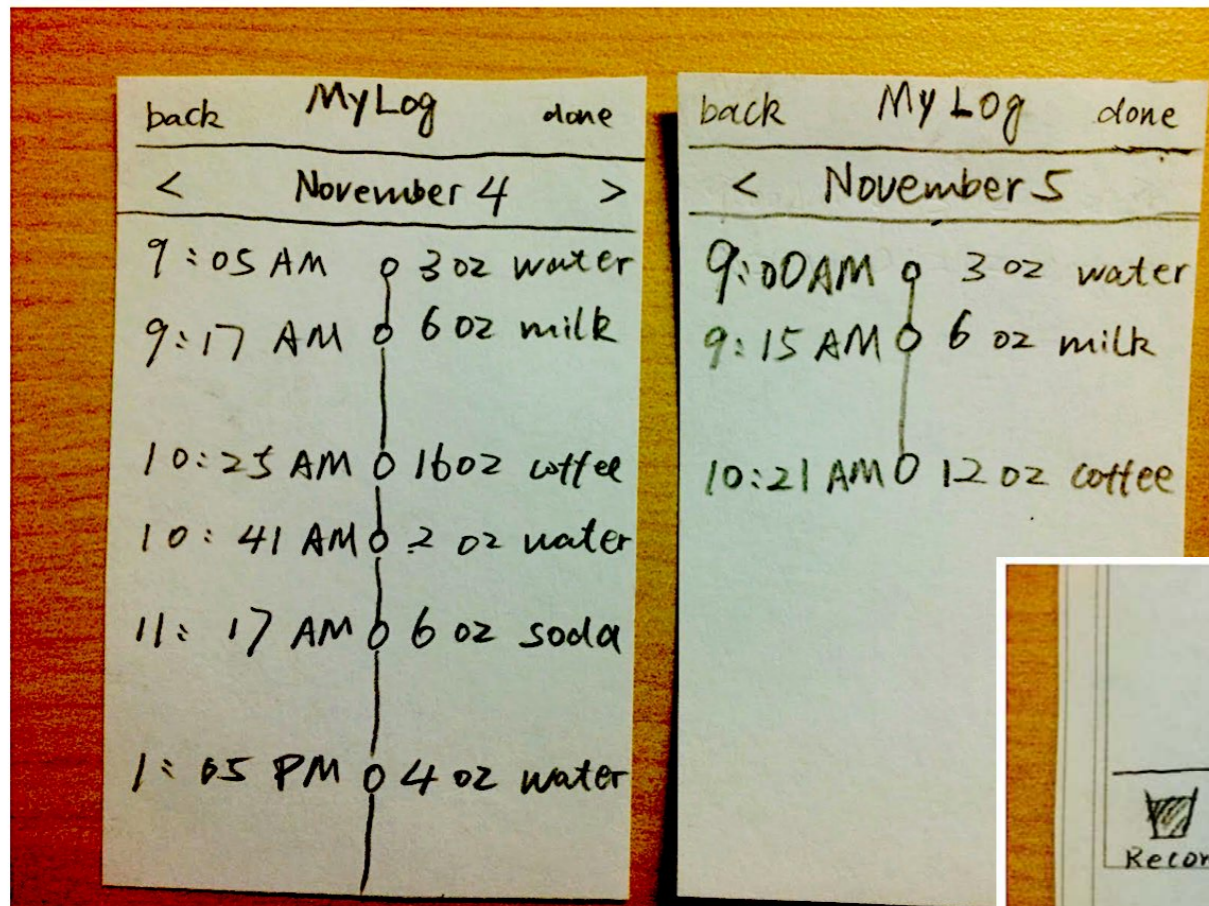 back MyLog done
< November 4 >
9:05 AM 3 oz water
9:17 AM 6 oz milk
10:25 AM 16 oz coffee
10:41 AM 2 oz water
11:17 AM 6 oz soda
1:05 PM 4 oz water
back My Log done
< November 5
9:00 AM 3 oz water
9:15 AM 6 oz milk
10:21 AM 12 oz coffee
Recor